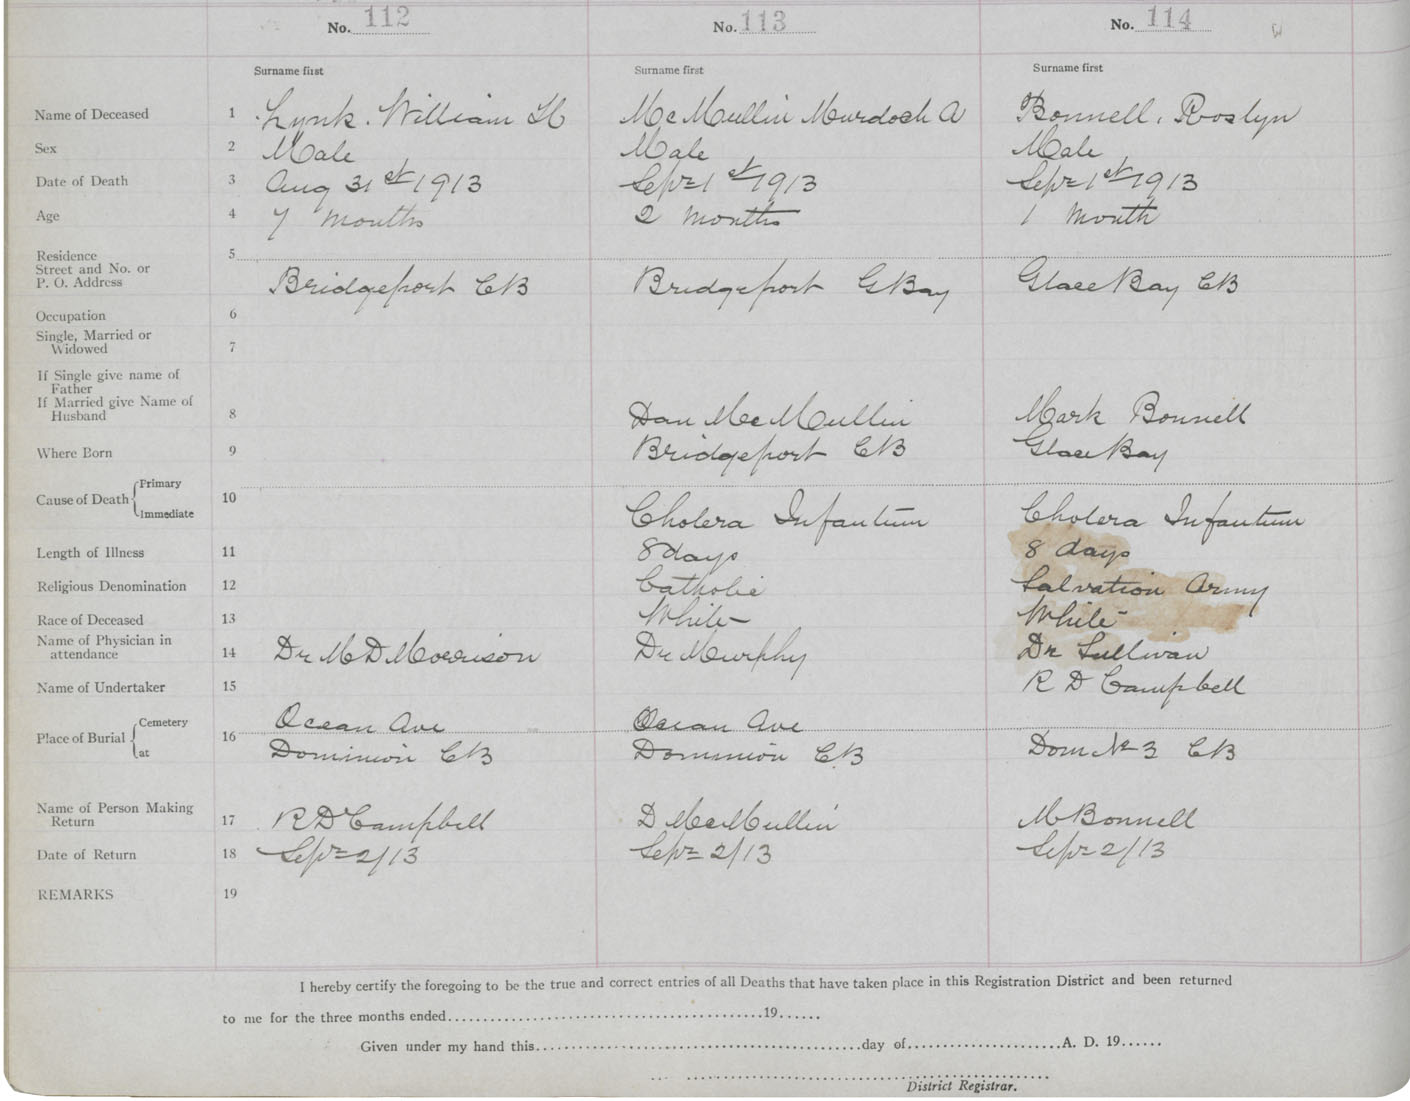 No. 112 No. 113 No. 114
Surname first Surname first Surname first
Name of Deceased 1 Lynk. William H McMullin Murdoch A Bonnell, Roslyn
Sex 2 Male Male Male
Date of Death 3 Aug 31st 1913 Sept 1st 1913 Sept 1st 1913
Age 4 7 months 2 months 1 month
Residence 5
Street and No. or
P. O. Address Bridgeport CB Bridgeport G Bay Glace Bay CB
Occupation 6
Single, Married or
Widowed 7
If Single give name of
Father
If Married give Name of
Husband 8 Dan McMullin Mark Bonnell
Where Born 9 Bridgeport CB Glace Bay
Cause of Death Primary 10
Immediate Cholera Infantum Cholera Infantum
Length of Illness 11 8 days 8 days
Religious Denomination 12 Catholic Salvation Army
Race of Deceased 13 White White
Name of Physician in
attendance 14 Dr M D Morrison Dr Murphy Dr Sullivan
Name of Undertaker 15 R D Campbell
Place of Burial Cemetery 16 Ocean Ave Ocean Ave
at Dominion CB Dominion CB Dom No 3 CB
Name of Person Making
Return 17 R D Campbell D McMullin M Bonnell
Date of Return 18 Sept 2/13 Sept 2/13 Sept 2/13
REMARKS 19
I hereby certify the foregoing to be the true and correct entries of all Deaths that have taken place in this Registration District and been returned
to me for the three months ended..........19......
Given under my hand this..........day of..........A. D. 19......
District Registrar.